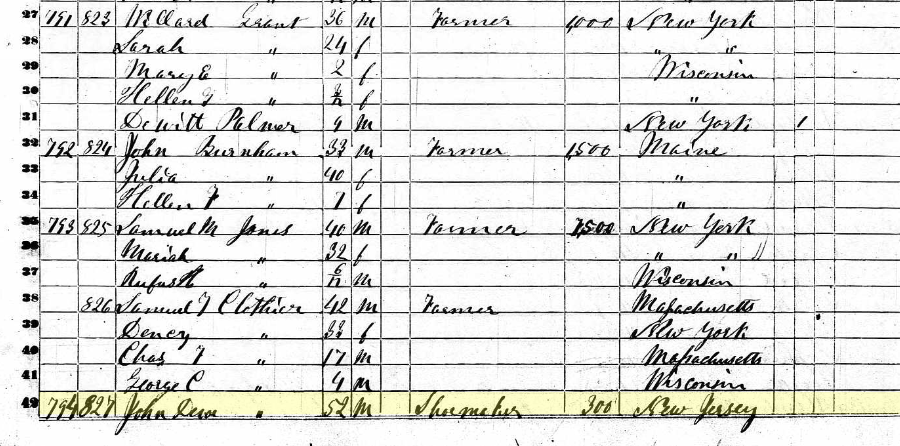 27 791 823 Willard Grant 36 m Farmer 1,000 New York
28 Sarah " 24 f " "
29 Mary E " 2 f Wisconsin
30 Hellen " /12 f "
31 Dewitt Palmer 9 m New York 1
32 792 824 John Burnham 33 m Farmer 1,500 Maine
33 Julia " 40 f "
34 Hellen F " 7 f "
35 793 825 Samuel M Jones 40 m Farmer 1,500 New York
36 Mariah " 32 f " "
37 Rufus H " 6/12 m Wisconsin
38 826 Samuel T Clothier 42 m Farmer Massachusetts
39 " 33 f New York
40 Chas T " 17 m Massachusetts
41 George C " 4 m Wisconsin
42 794 827 John " 52 m Shoemaker 300 New Jersey